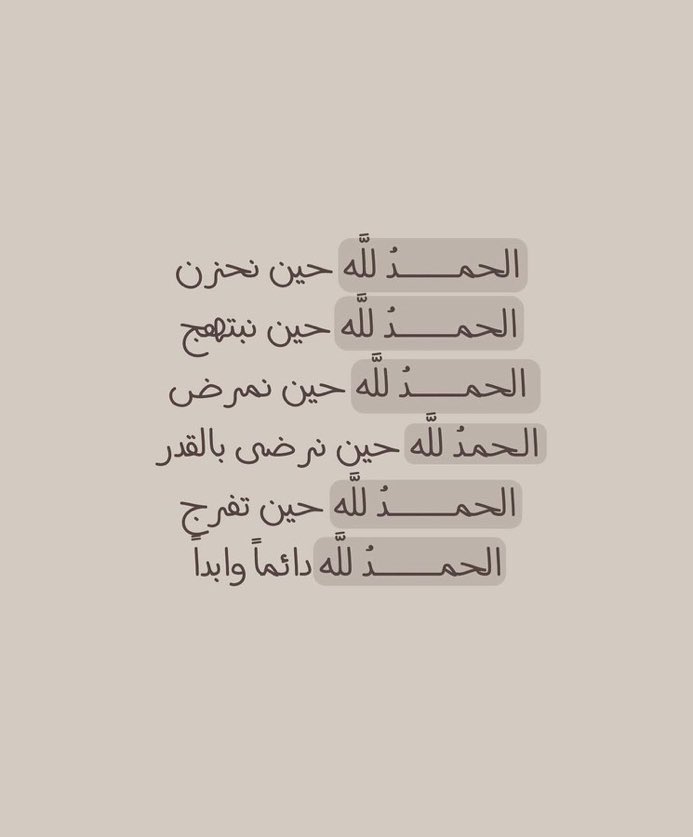 الحمـــــدُ للَّه حين نحزن
الحمـــــدُ للَّه حين نبتهج
الحمـــــدُ للَّه حين نمرض
الحمدُ للَّه حين نرضى بالقدر
الحمـــــدُ للَّه حين تفرج
الحمـــــدُ للَّه دائماً وابداً